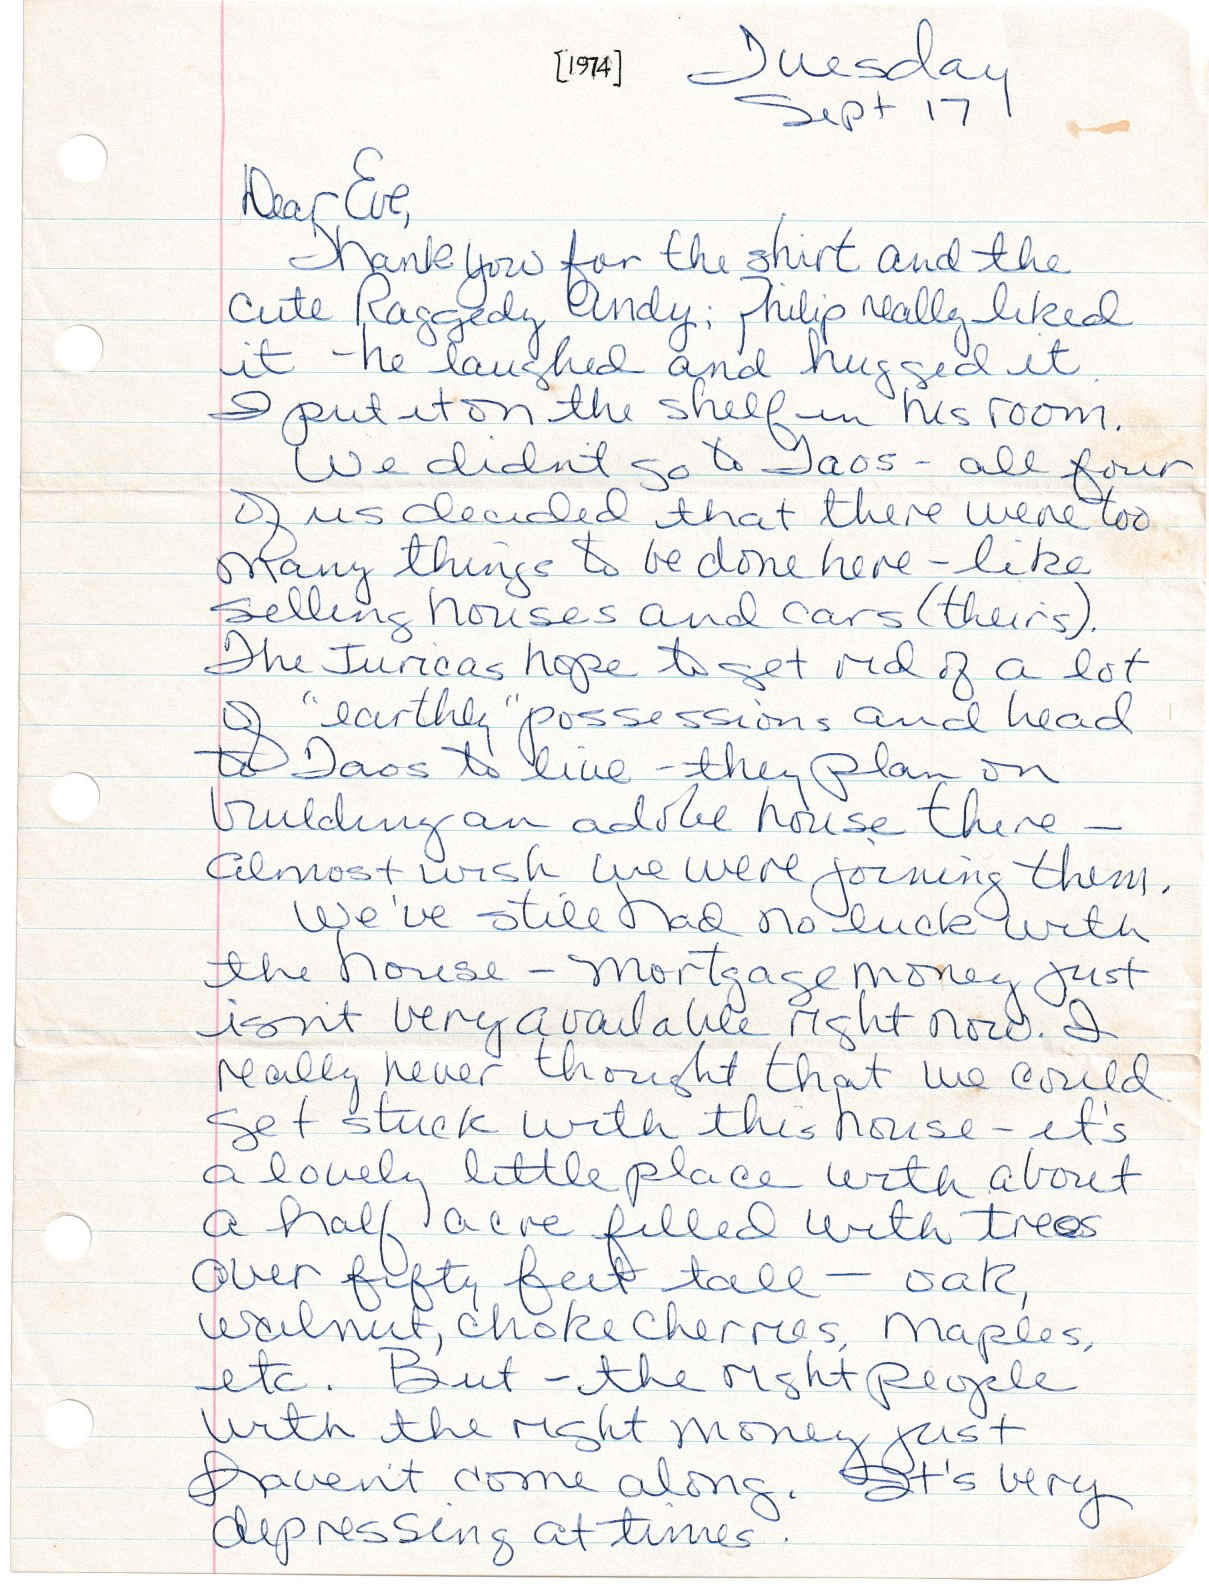 [1974] Tuesday
Sept 17
Dear Eve,
Thank you for the shirt and the
cute Raggedy Andy; Philip really liked
it - he laughed and hugged it.
I put it on the shelf in his room.
We didn't go to Taos - all four
of us decided that there were too
many things to be done here - like
selling houses and cars (theirs).
The Juricas hope to get rid of a lot
of "earthly" possessions and head
to Taos to live - they plan on
building an adobe house there -
almost wish we were joining them.
We've still had no luck with
the house - mortgage money just
isn't very available right now. I
really never thought that we could
get stuck with this house - it's
a lovely little place with about
a half acre filled with trees
over fifty feet tall - oak,
walnut, choke cherries, maples,
etc. But - the right people
with the right money just
haven't come along. It's very
depressing at times.